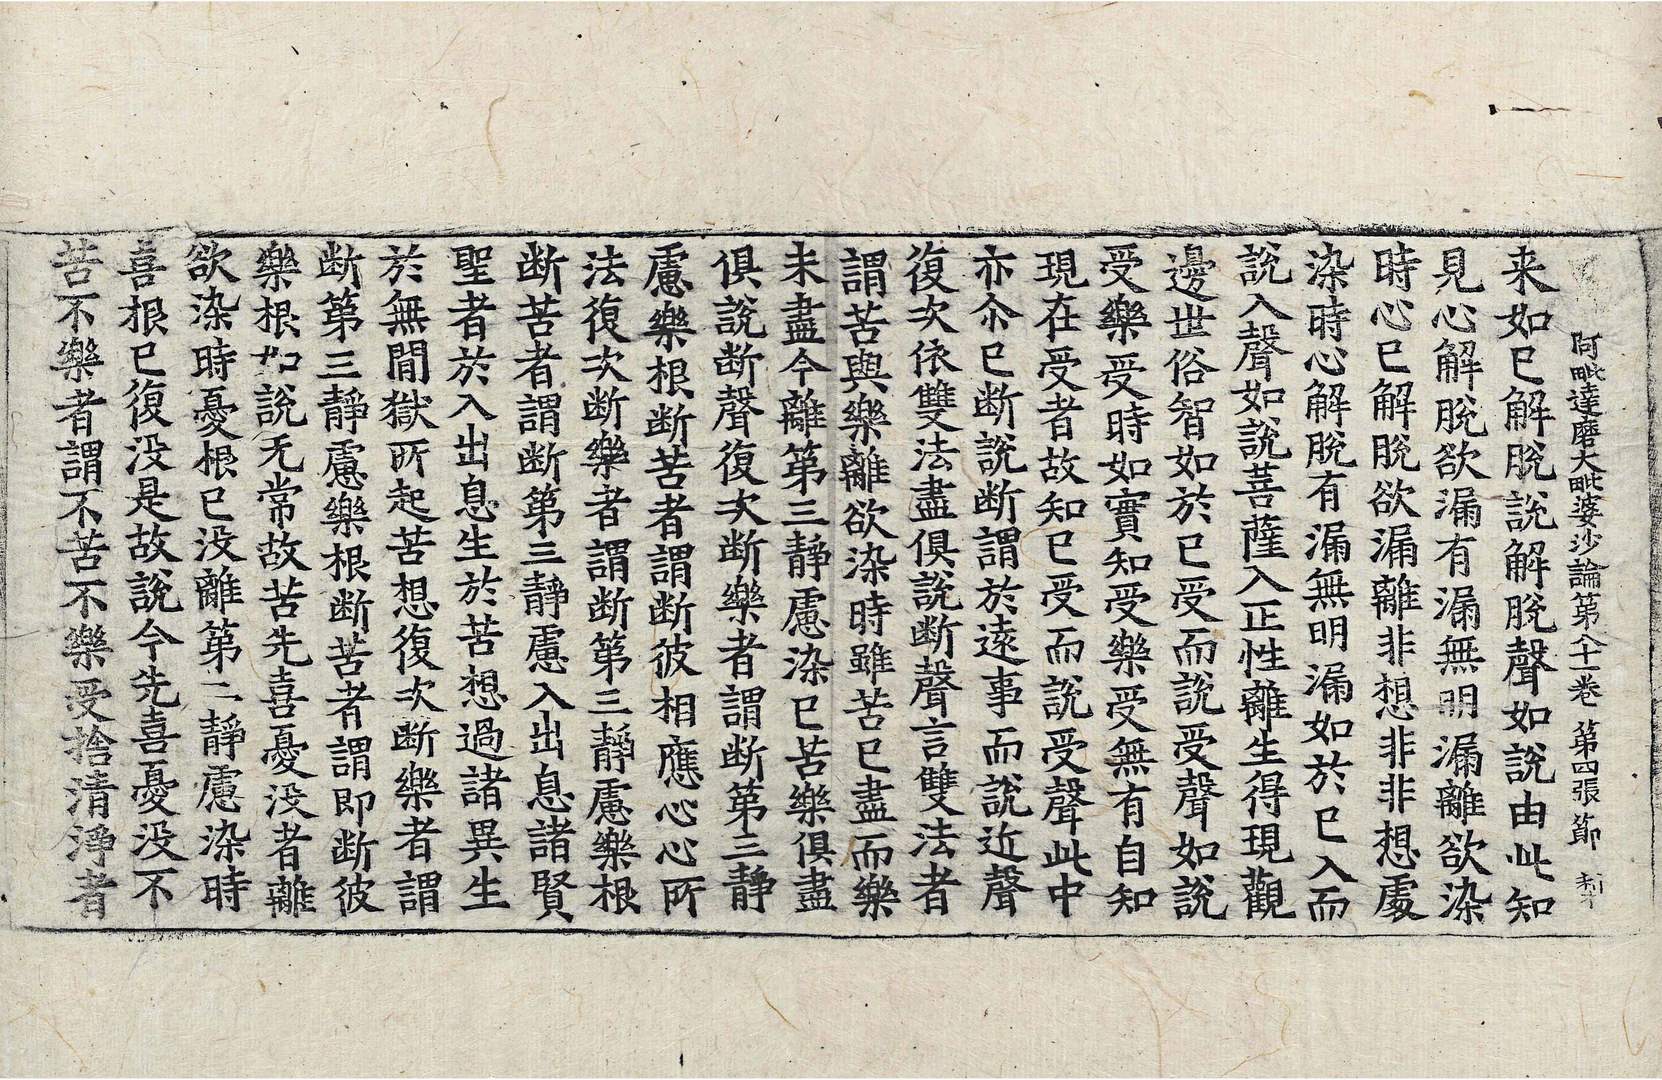 阿毗達磨大毗婆沙論第八十一卷 第四張 節
来如已解脫說解脫聲如說由此知
見心解脫欲漏有漏無明漏離欲染
時心已解脫欲漏離非想非非想處
染時心解脫有漏無明漏如於已入而
說入聲如說菩薩入正性離生得現觀
邊世俗智如於已受而說受聲如說
受樂受時如實知受樂受無有自知
現在受者故知已受而說受聲此中
亦尒已断說断謂於遠事而說近聲
復次依雙法盡俱說断聲言雙法者
謂苦與樂離欲染時雖苦已盡而樂
未盡今離第三靜慮染已苦樂俱盡
俱說断聲復次断樂者謂断第三靜
慮樂根断苦者謂断彼相應心心所
法復次断樂者謂断第三靜慮樂根
断苦者謂断第三靜慮入出息諸賢
聖者於入出息生於苦想過諸異生
於無間獄所起苦想復次断樂者謂
断第三靜慮樂根断苦者謂即断彼
樂根如說无常故苦先喜憂没者離
欲染時憂根已没離第二靜慮染時
喜根已復没是故說今先喜憂没不
苦不樂者謂不苦不樂受捨清淨者